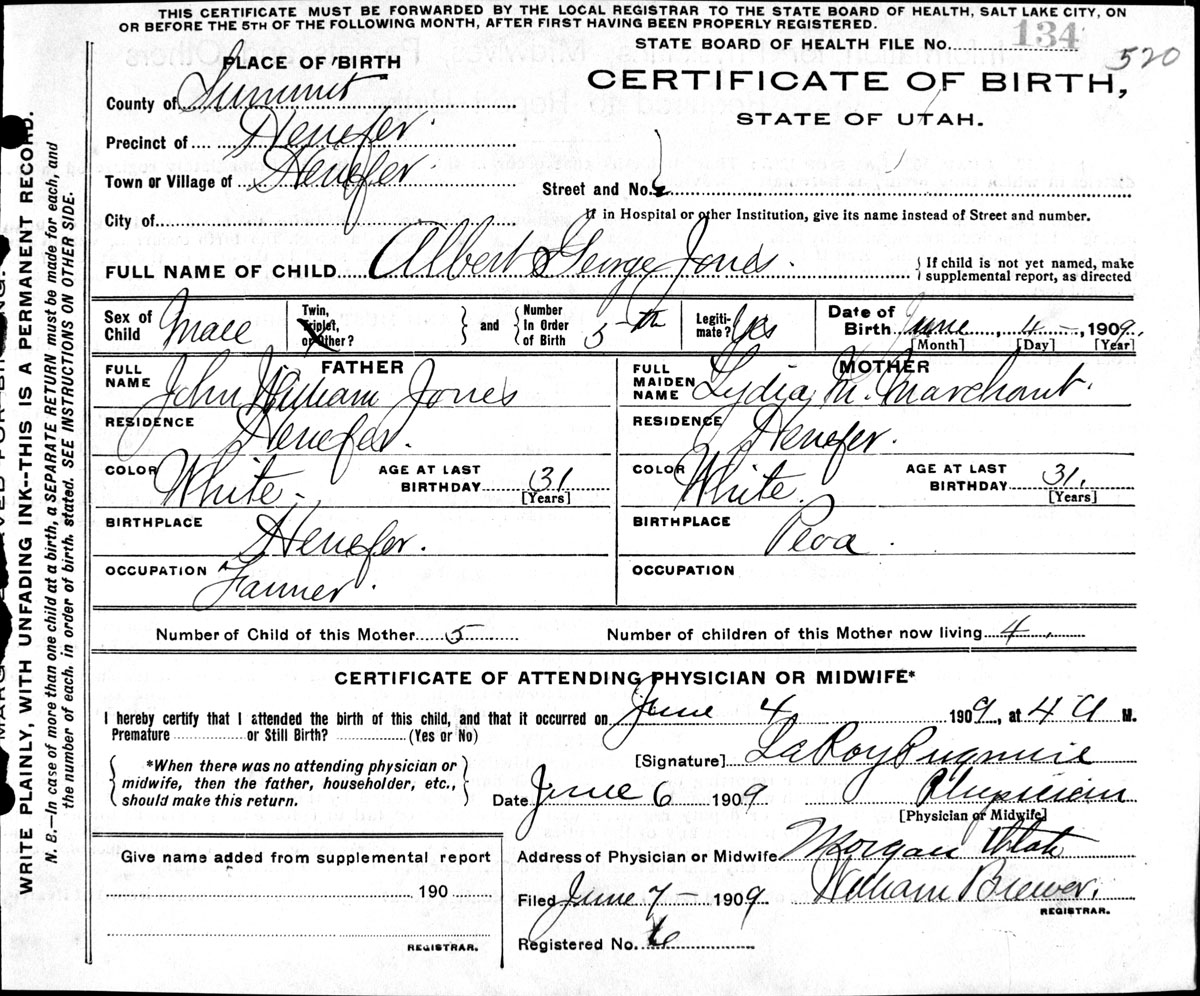 THIS CERTIFICATE MUST BE FORWARDED BY THE LOCAL REGISTRAR TO THE STATE BOARD OF HEALTH, SALT LAKE CITY, ON
OR BEFORE THE 5TH OF THE FOLLOWING MONTH, AFTER FIRST HAVING BEEN PROPERLY REGISTERED.
STATE BOARD OF HEALTH FILE No. 134
520
PLACE OF BIRTH
CERTIFICATE OF BIRTH,
STATE OF UTAH.
County of Summit
Precinct of Henefer.
Town or Village of Henefer
Street and No.
City of
If in Hospital or other Institution, give its name instead of Street and number.
FULL NAME OF CHILD Albert George Jones.
{ If child is not yet named, make
supplemental report, as directed
Sex of Child Male
Twin, Triplet, or Other? } and { Number In Order of Birth 5th
Legiti-mate? Yes
Date of Birth June, 4 -, 1909.
[Month] [Day] [Year]
FATHER
FULL NAME John William Jones
RESIDENCE Henefer.
COLOR White. AGE AT LAST BIRTHDAY 31 [Years]
BIRTHPLACE Henefer.
OCCUPATION Farmer.
MOTHER
FULL MAIDEN NAME Lydia M. Marchant.
RESIDENCE Henefer.
COLOR White. AGE AT LAST BIRTHDAY 31. [Years]
BIRTHPLACE Peoa.
OCCUPATION
Number of Child of this Mother 5 Number of children of this Mother now living 4.
CERTIFICATE OF ATTENDING PHYSICIAN OR MIDWIFE*
I hereby certify that I attended the birth of this child, and that it occurred on June 4 1909, at 4 A M.
Premature or Still Birth? (Yes or No)
[Signature] LaRoy Pugmire
{ *When there was no attending physician or
midwife, then the father, householder, etc.,
should make this return. }
Date June 6 1909 Physician
[Physician or Midwife]
Address of Physician or Midwife Morgan Utah
Give name added from supplemental report
190
REGISTRAR.
Filed June 7 - 1909 William Brewer.
REGISTRAR.
Registered No. 6
WRITE PLAINLY, WITH UNFADING INK--THIS IS A PERMANENT RECORD.
N. B.—In case of more than one child at a birth, a SEPARATE RETURN must be made for each, and
the number of each, in order of birth, stated. SEE INSTRUCTIONS ON OTHER SIDE.